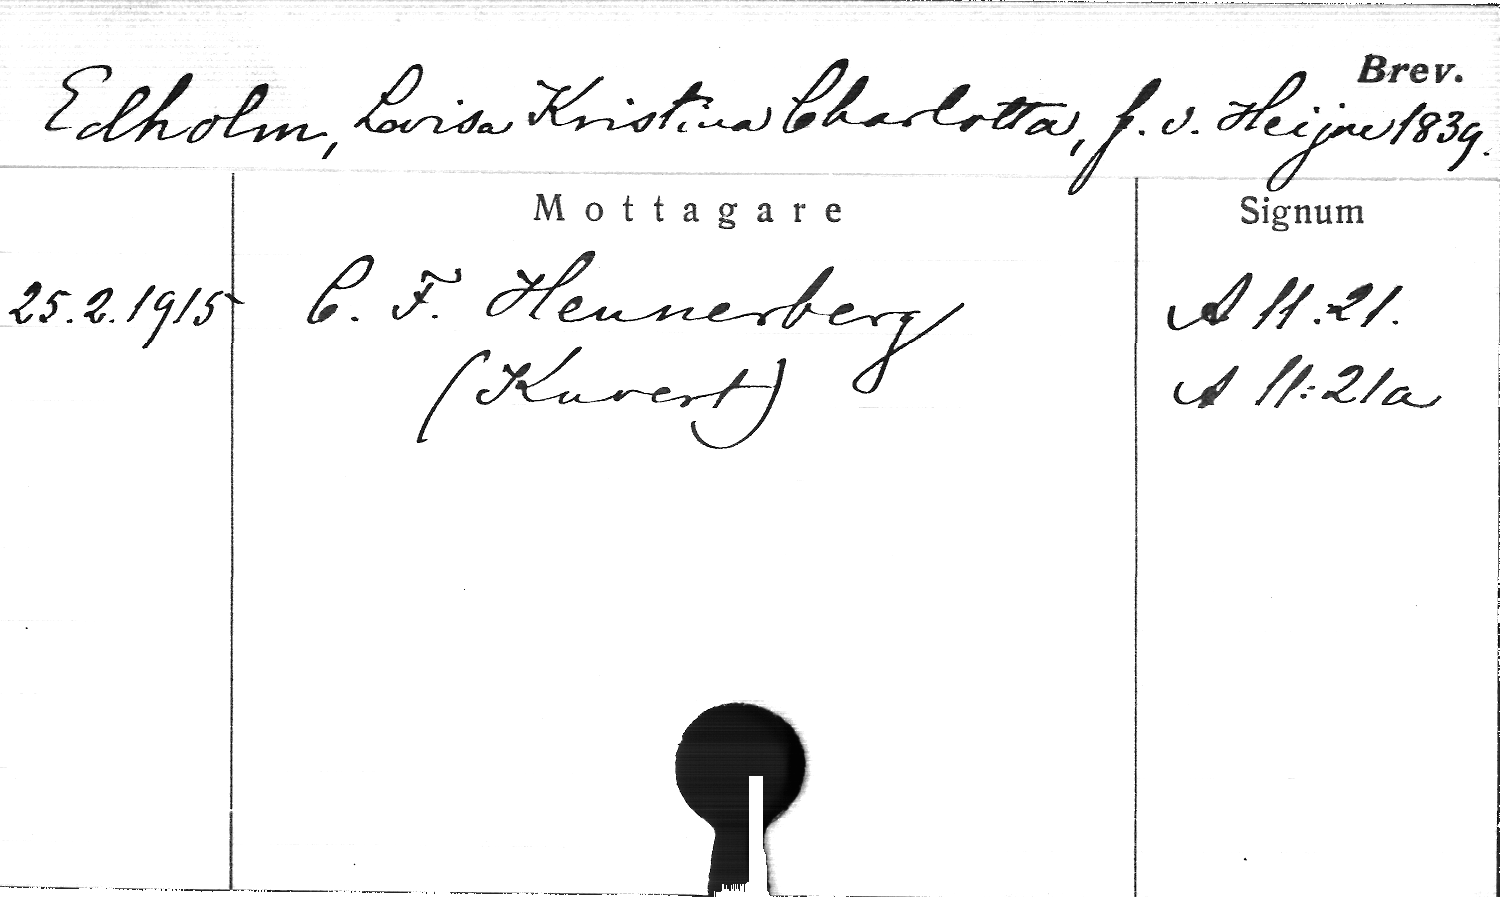 Brev.
Edholm, Lovisa Kristina Charlotta, f. v. Heijne 1839.
Mottagare Signum
25.2.1915 C. F. Hennerberg A 11:21.
(Kuvert) A 11:21a